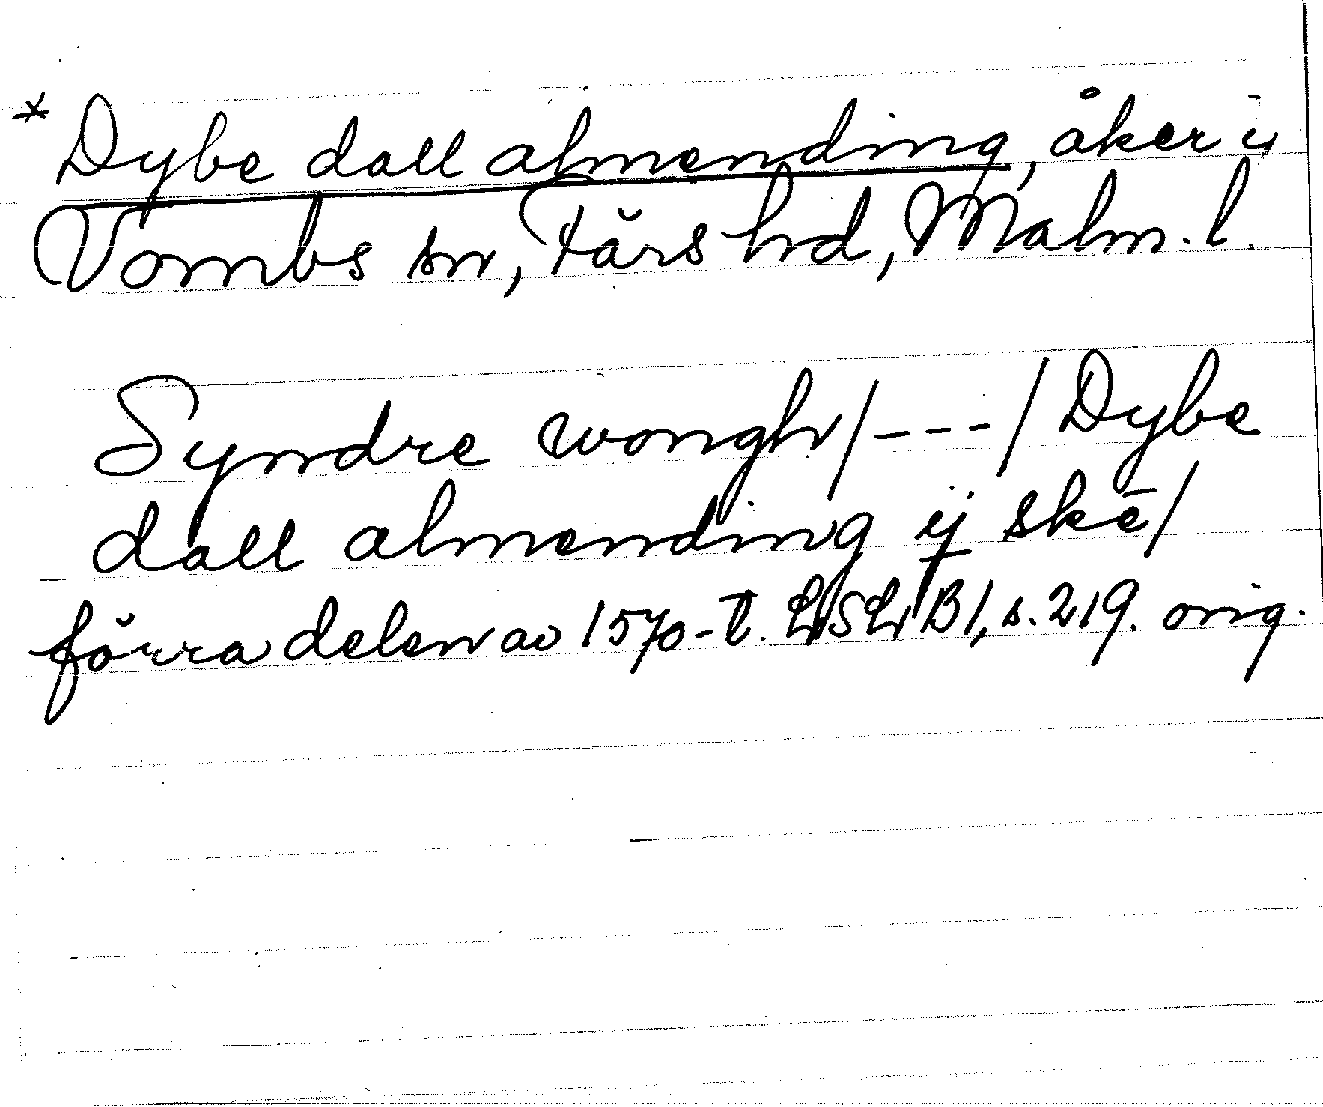 * Dybe dall almending, åker i
Vombs sn, Färs hd, Malm. l.
Syndre wongh/---/Dybe
dall almending ij skē/
förra delen av 1570-t. LSLB1, s. 219. orig.